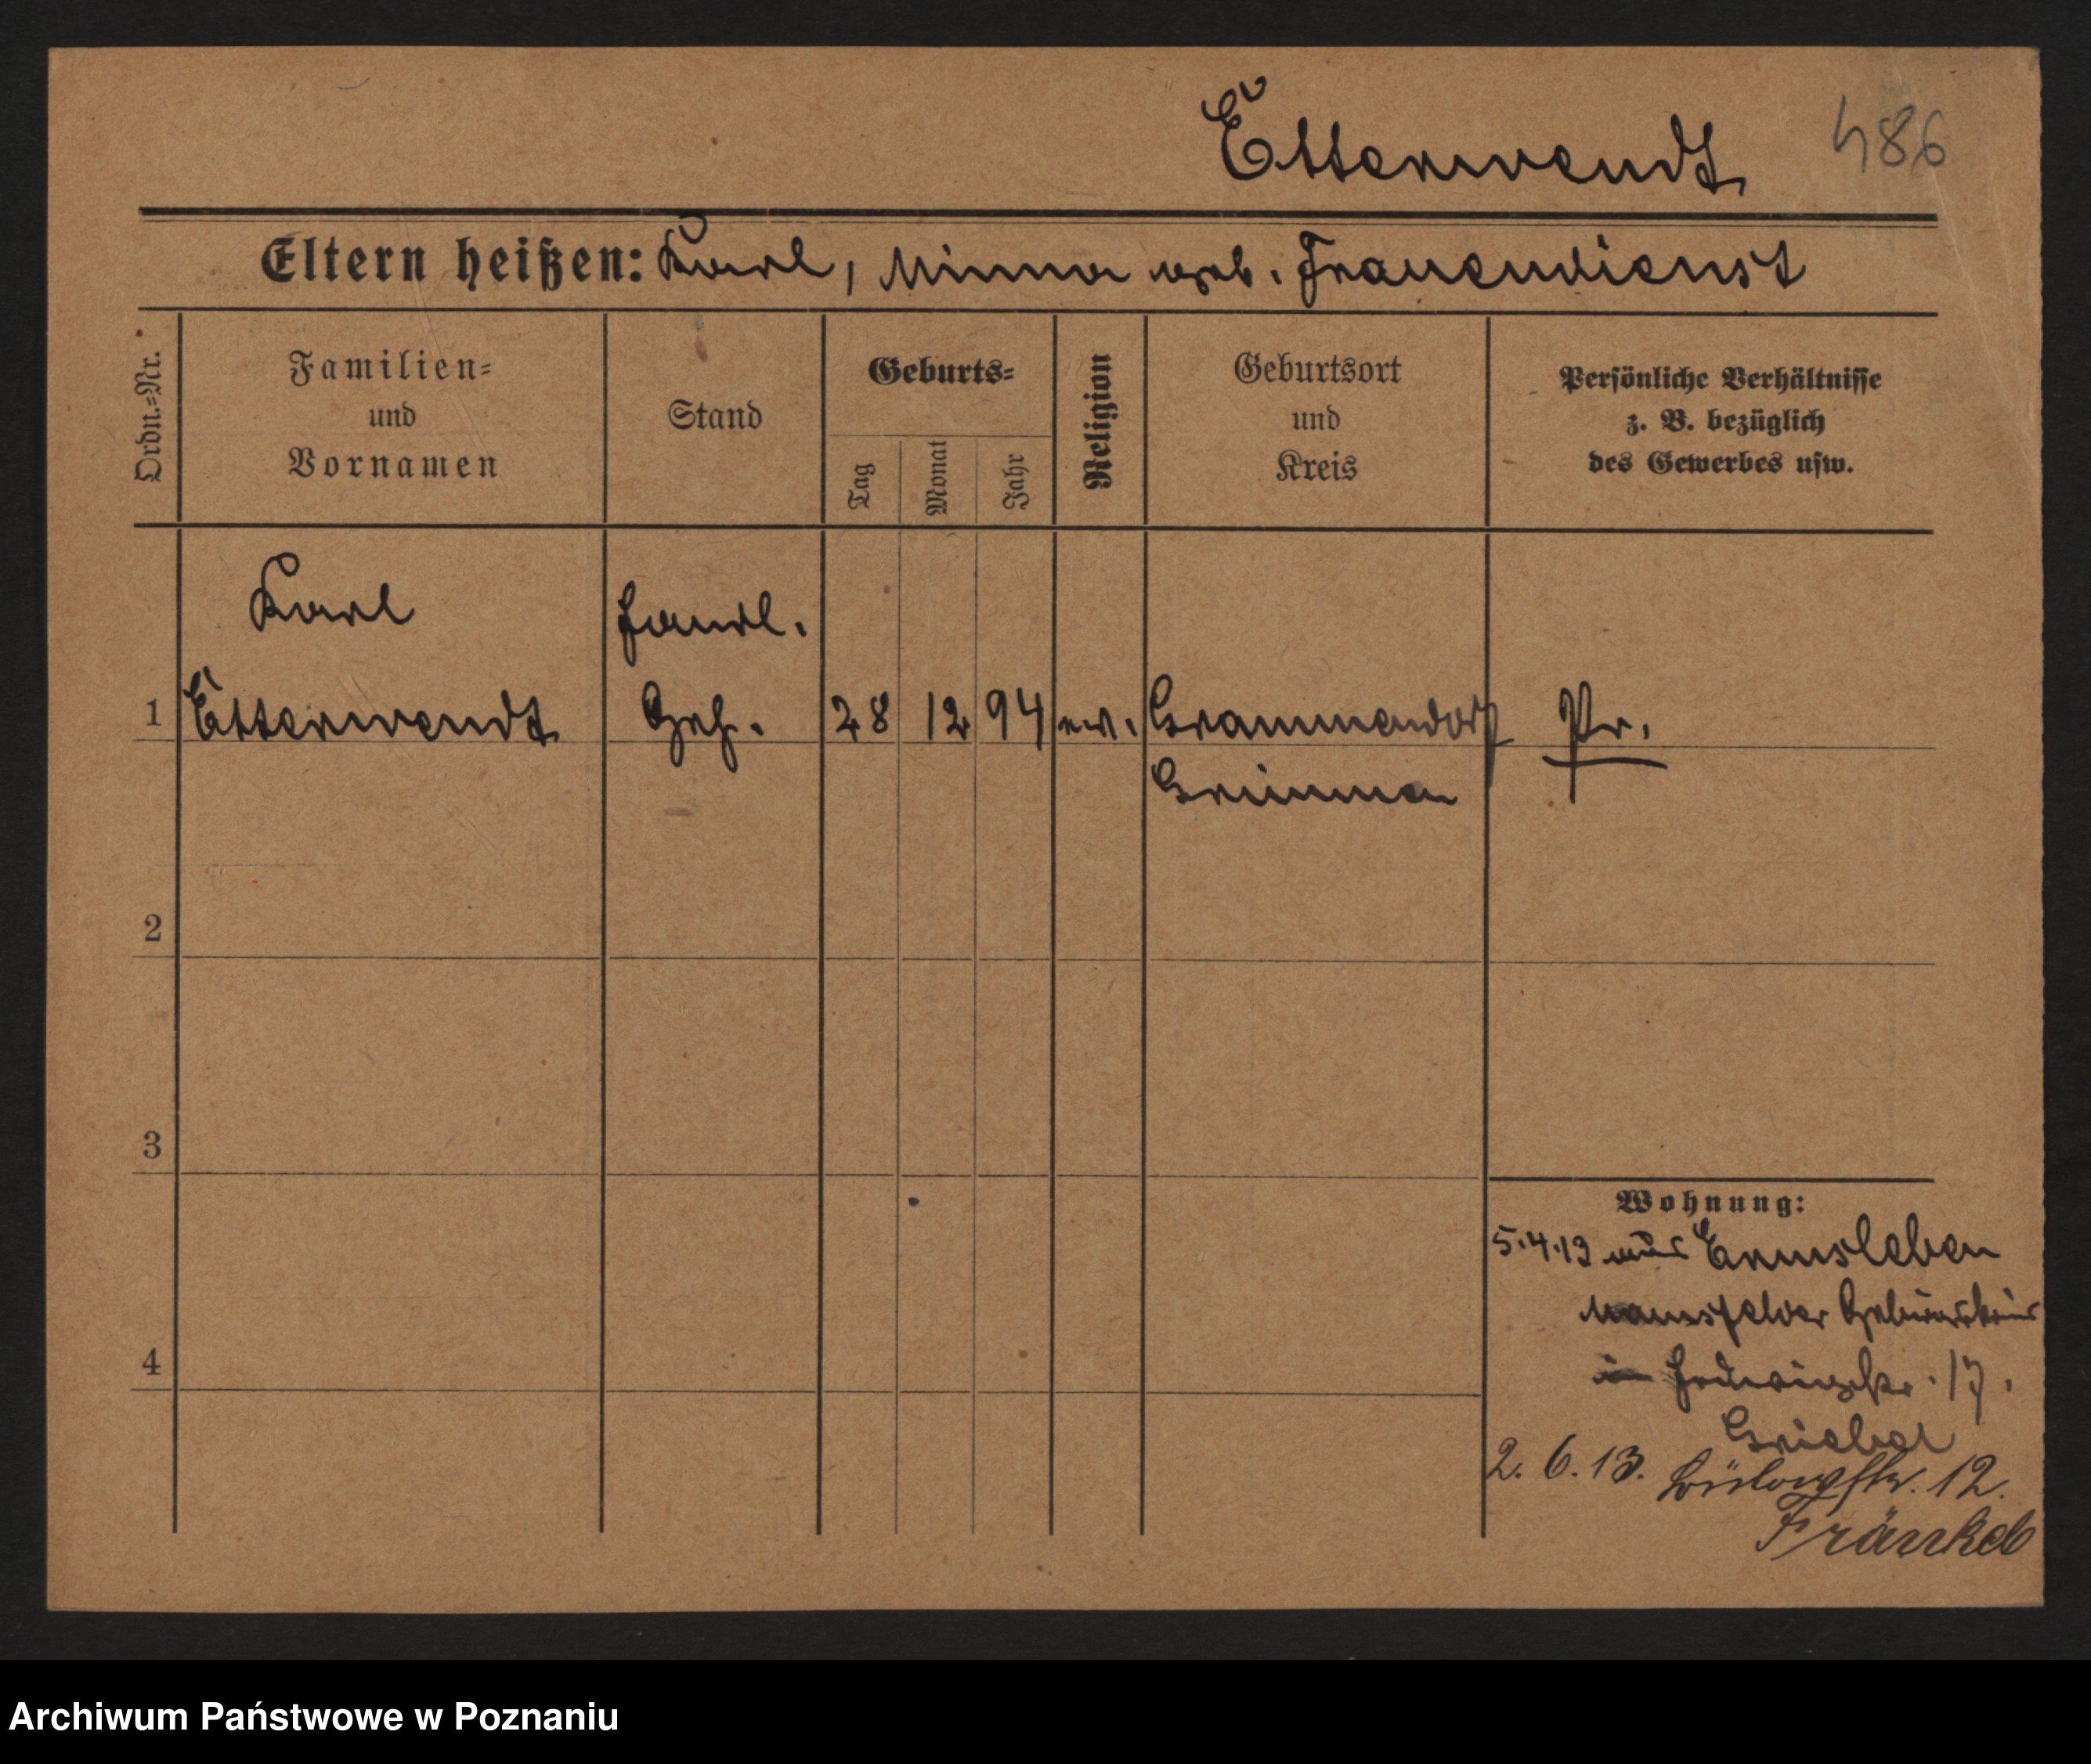 Ettenwendt
486
Eltern heißen: Karl, Minna geb. Frauendienst
Ordn.-Nr.
Familien- und Vornamen
Stand
Geburts-
Tag
Monat
Jahr
Religion
Geburtsort und Kreis
Persönliche Verhältnisse
z. B. bezüglich
des Gewerbes usw.
Karl
Handl.
1 Ettenwendt Geh. 28 12 94 ev. Grammendorf Pr.
Grimmen
2
3
4
Wohnung:
5.4.13 aus Ermsleben
Mansfelder Gebirgskreis
in Hedwigstr. 17.
Griebel
2. 6. 13. Bülowstr. 12.
Fränkel
Archiwum Państwowe w Poznaniu